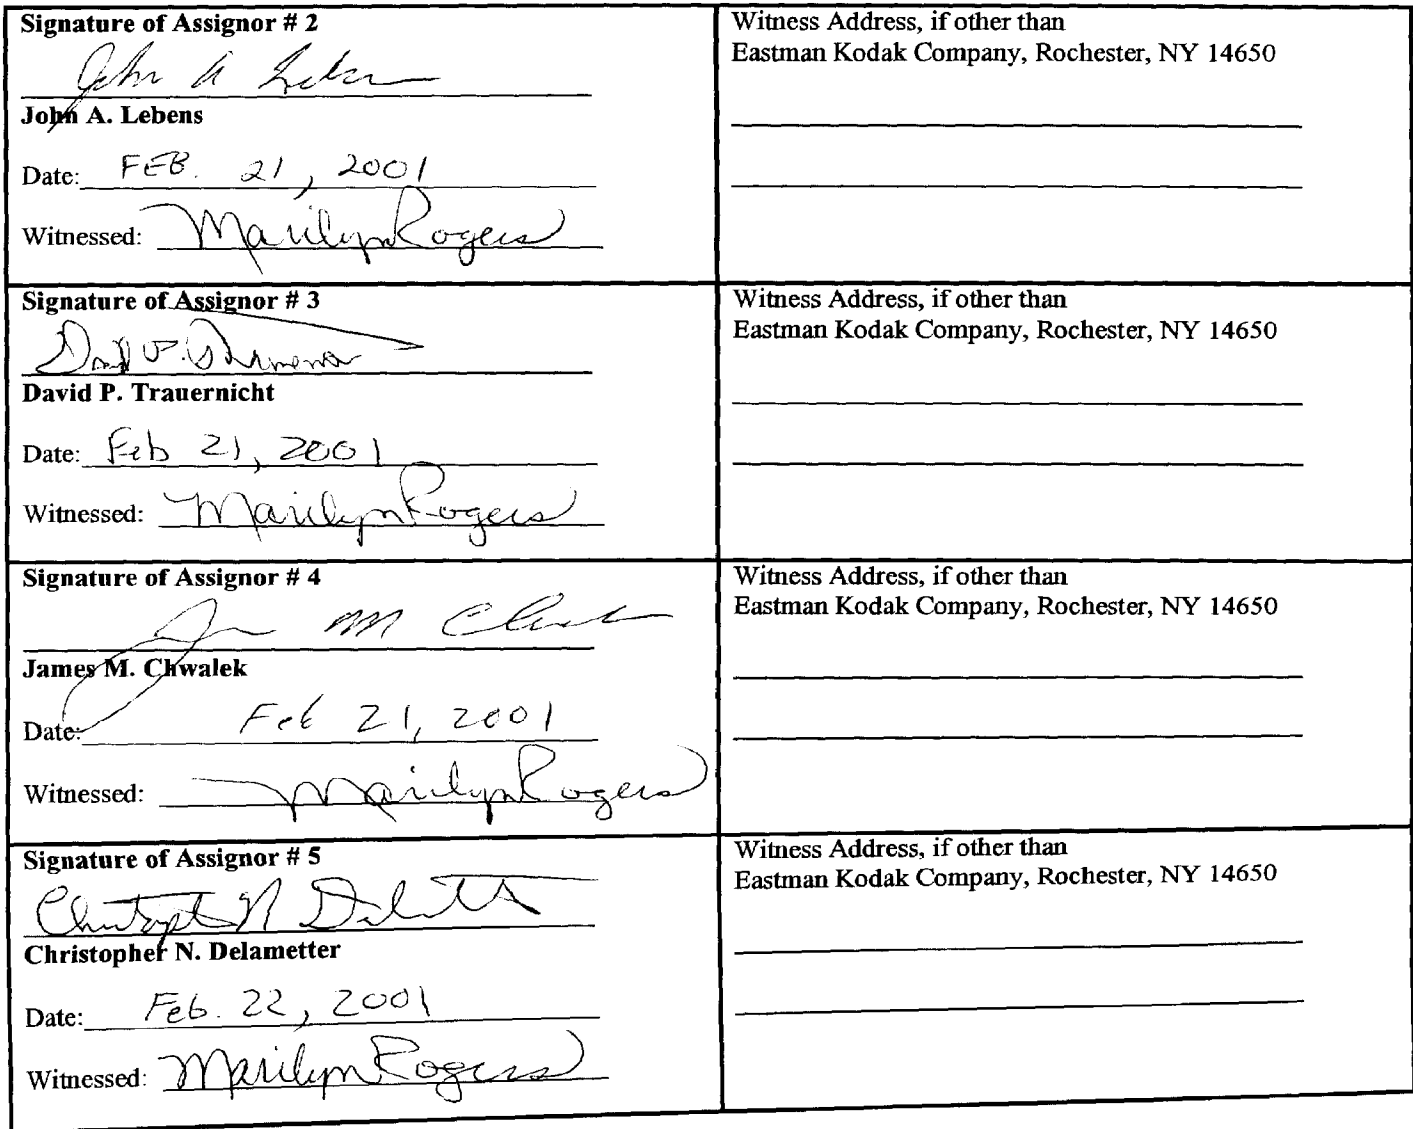 Signature of Assignor # 2
John A Leben
John A. Lebens
Date: FEB. 21, 2001
Witnessed: Marilyn Rogers
Witness Address, if other than
Eastman Kodak Company, Rochester, NY 14650
Signature of Assignor # 3
David P. Trauernicht
Date: Feb 21, 2001
Witnessed: Marilyn Rogers
Witness Address, if other than
Eastman Kodak Company, Rochester, NY 14650
Signature of Assignor # 4
James M. Chwalek
Date: Feb 21, 2001
Witnessed: Marilyn Rogers
Witness Address, if other than
Eastman Kodak Company, Rochester, NY 14650
Signature of Assignor # 5
Christopher N. Delametter
Date: Feb. 22, 2001
Witnessed: Marilyn Rogers
Witness Address, if other than
Eastman Kodak Company, Rochester, NY 14650